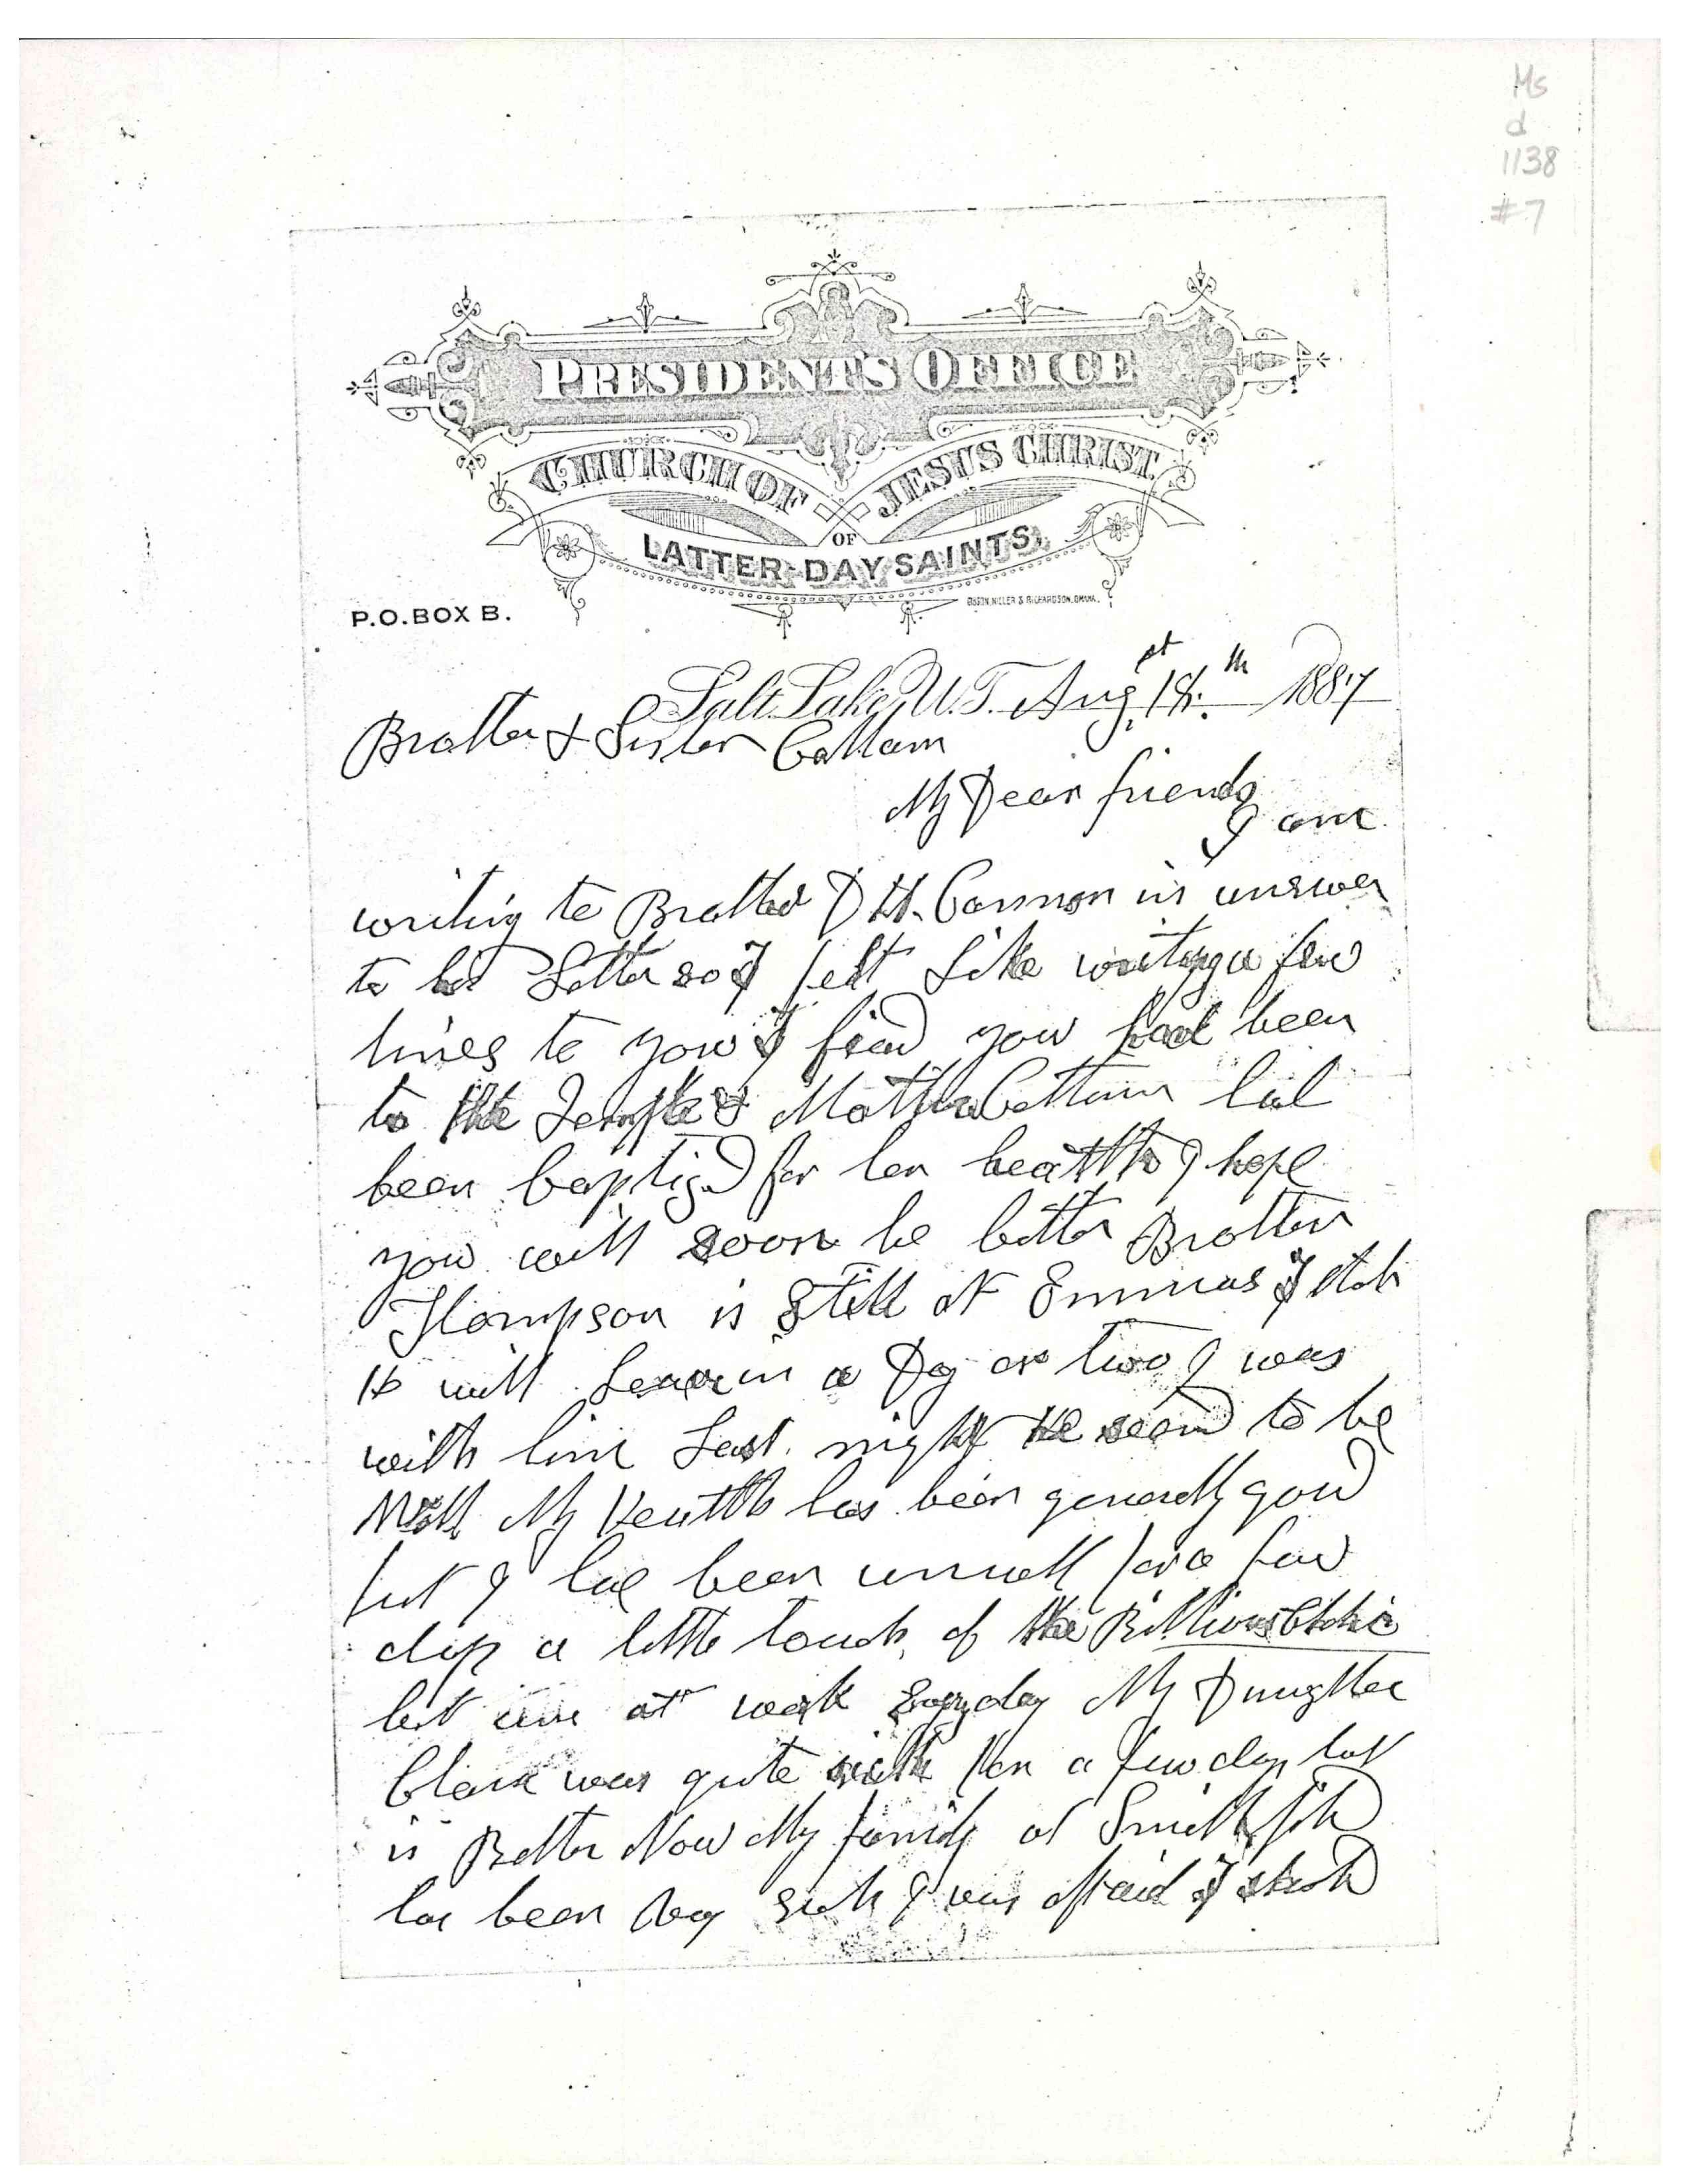 Ms
d
1138
#7
PRESIDENT'S OFFICE
CHURCH OF JESUS CHRIST
OF
LATTER-DAY SAINTS,
P.O. BOX B.
Salt Lake, U.T. Aug 18th 1887
Brother & Sister Cottam
My Dear friends
I am
writing to Brother D H. Cannon in answer
to his Letter so I felt Like writing a few
lines to you I find you had been
to the Temple & Mother Cottam had
been baptized for her health & I hope
you will soon be better Brother
Thompson is Still at Emmas I
He will Leave in a Day or two I was
with him Last night He seemd to be
Well My Health has been generally good
but I have been unwell for a few
days a little touch of the Billious Cholic
but am at work Evryday My Daughter
Clara was quite sick for a few days but
is Better Now My family at Smithfield
has been Very Sick I was afraid I should